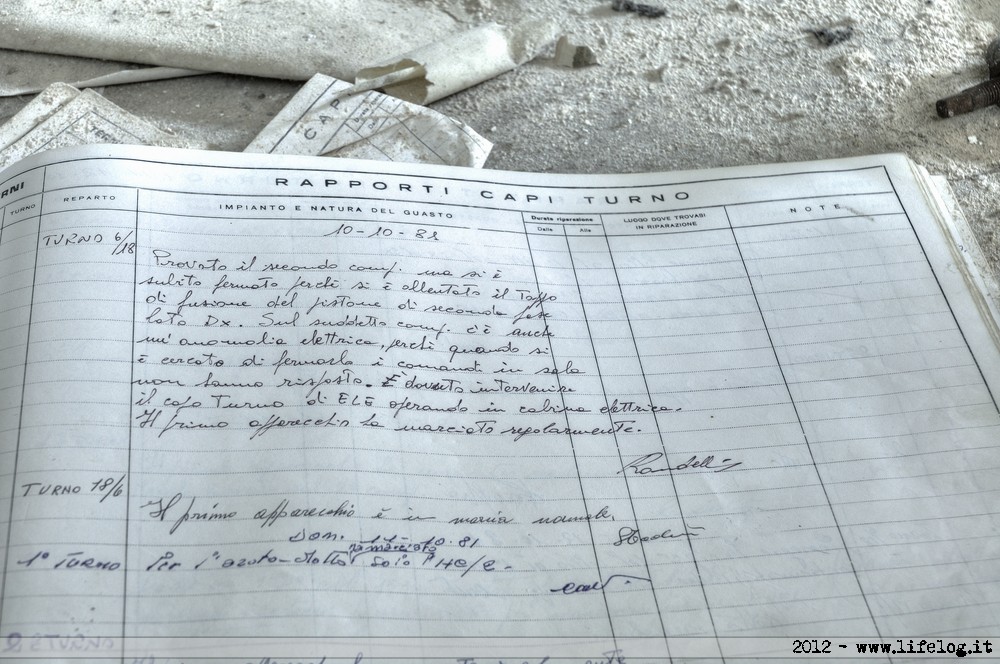 CAP
RAPPORTI CAPI TURNO
RNI
TURNO
REPARTO
IMPIANTO E NATURA DEL GUASTO
Durata riparazione
Dalle
Alle
LUOGO DOVE TROVASI
IN RIPARAZIONE
NOTE
10-10-81
TURNO 6/18
Provato il secondo comp. ma si è
subito fermato perchè si è allentato il Tappo
di fusione del pistone di seconda fase
lato Dx. Sul suddetto comp. c'è anche
un'anomalia elettrica, perchè quando si
è cercato di fermarlo i comandi in sala
non hanno risposto. È dovuto intervenire
il capo Turno di ELE operando in cabina elettrica.
Il primo apparecchio ha marciato regolarmente.
TURNO 18/6
Il primo apparecchio è in marcia normale.
Dom. 11-10-81
ha marciato
1° TURNO Per l'azoto solo
TURNO
2012 - www.lifelog.it